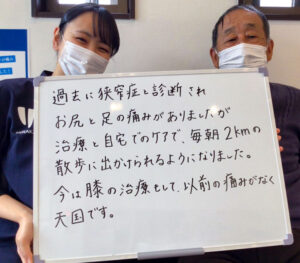 過去に狭窄症と診断され
お尻と足の痛みがありましたが
治療と自宅でのケアで、毎朝2kmの
散歩に出かけられるようになりました。
今は膝の治療をして、以前の痛みがなく
天国です。